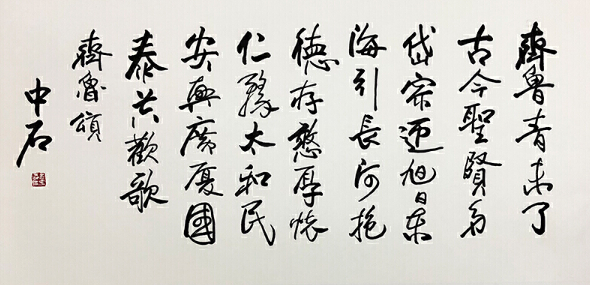 齊魯青未了
古今聖賢多
岱宗迎旭日東
海引長河抱
德存憨厚懷
仁太和民
安興廣廈國
泰共歡歌
齊魯頌
中石